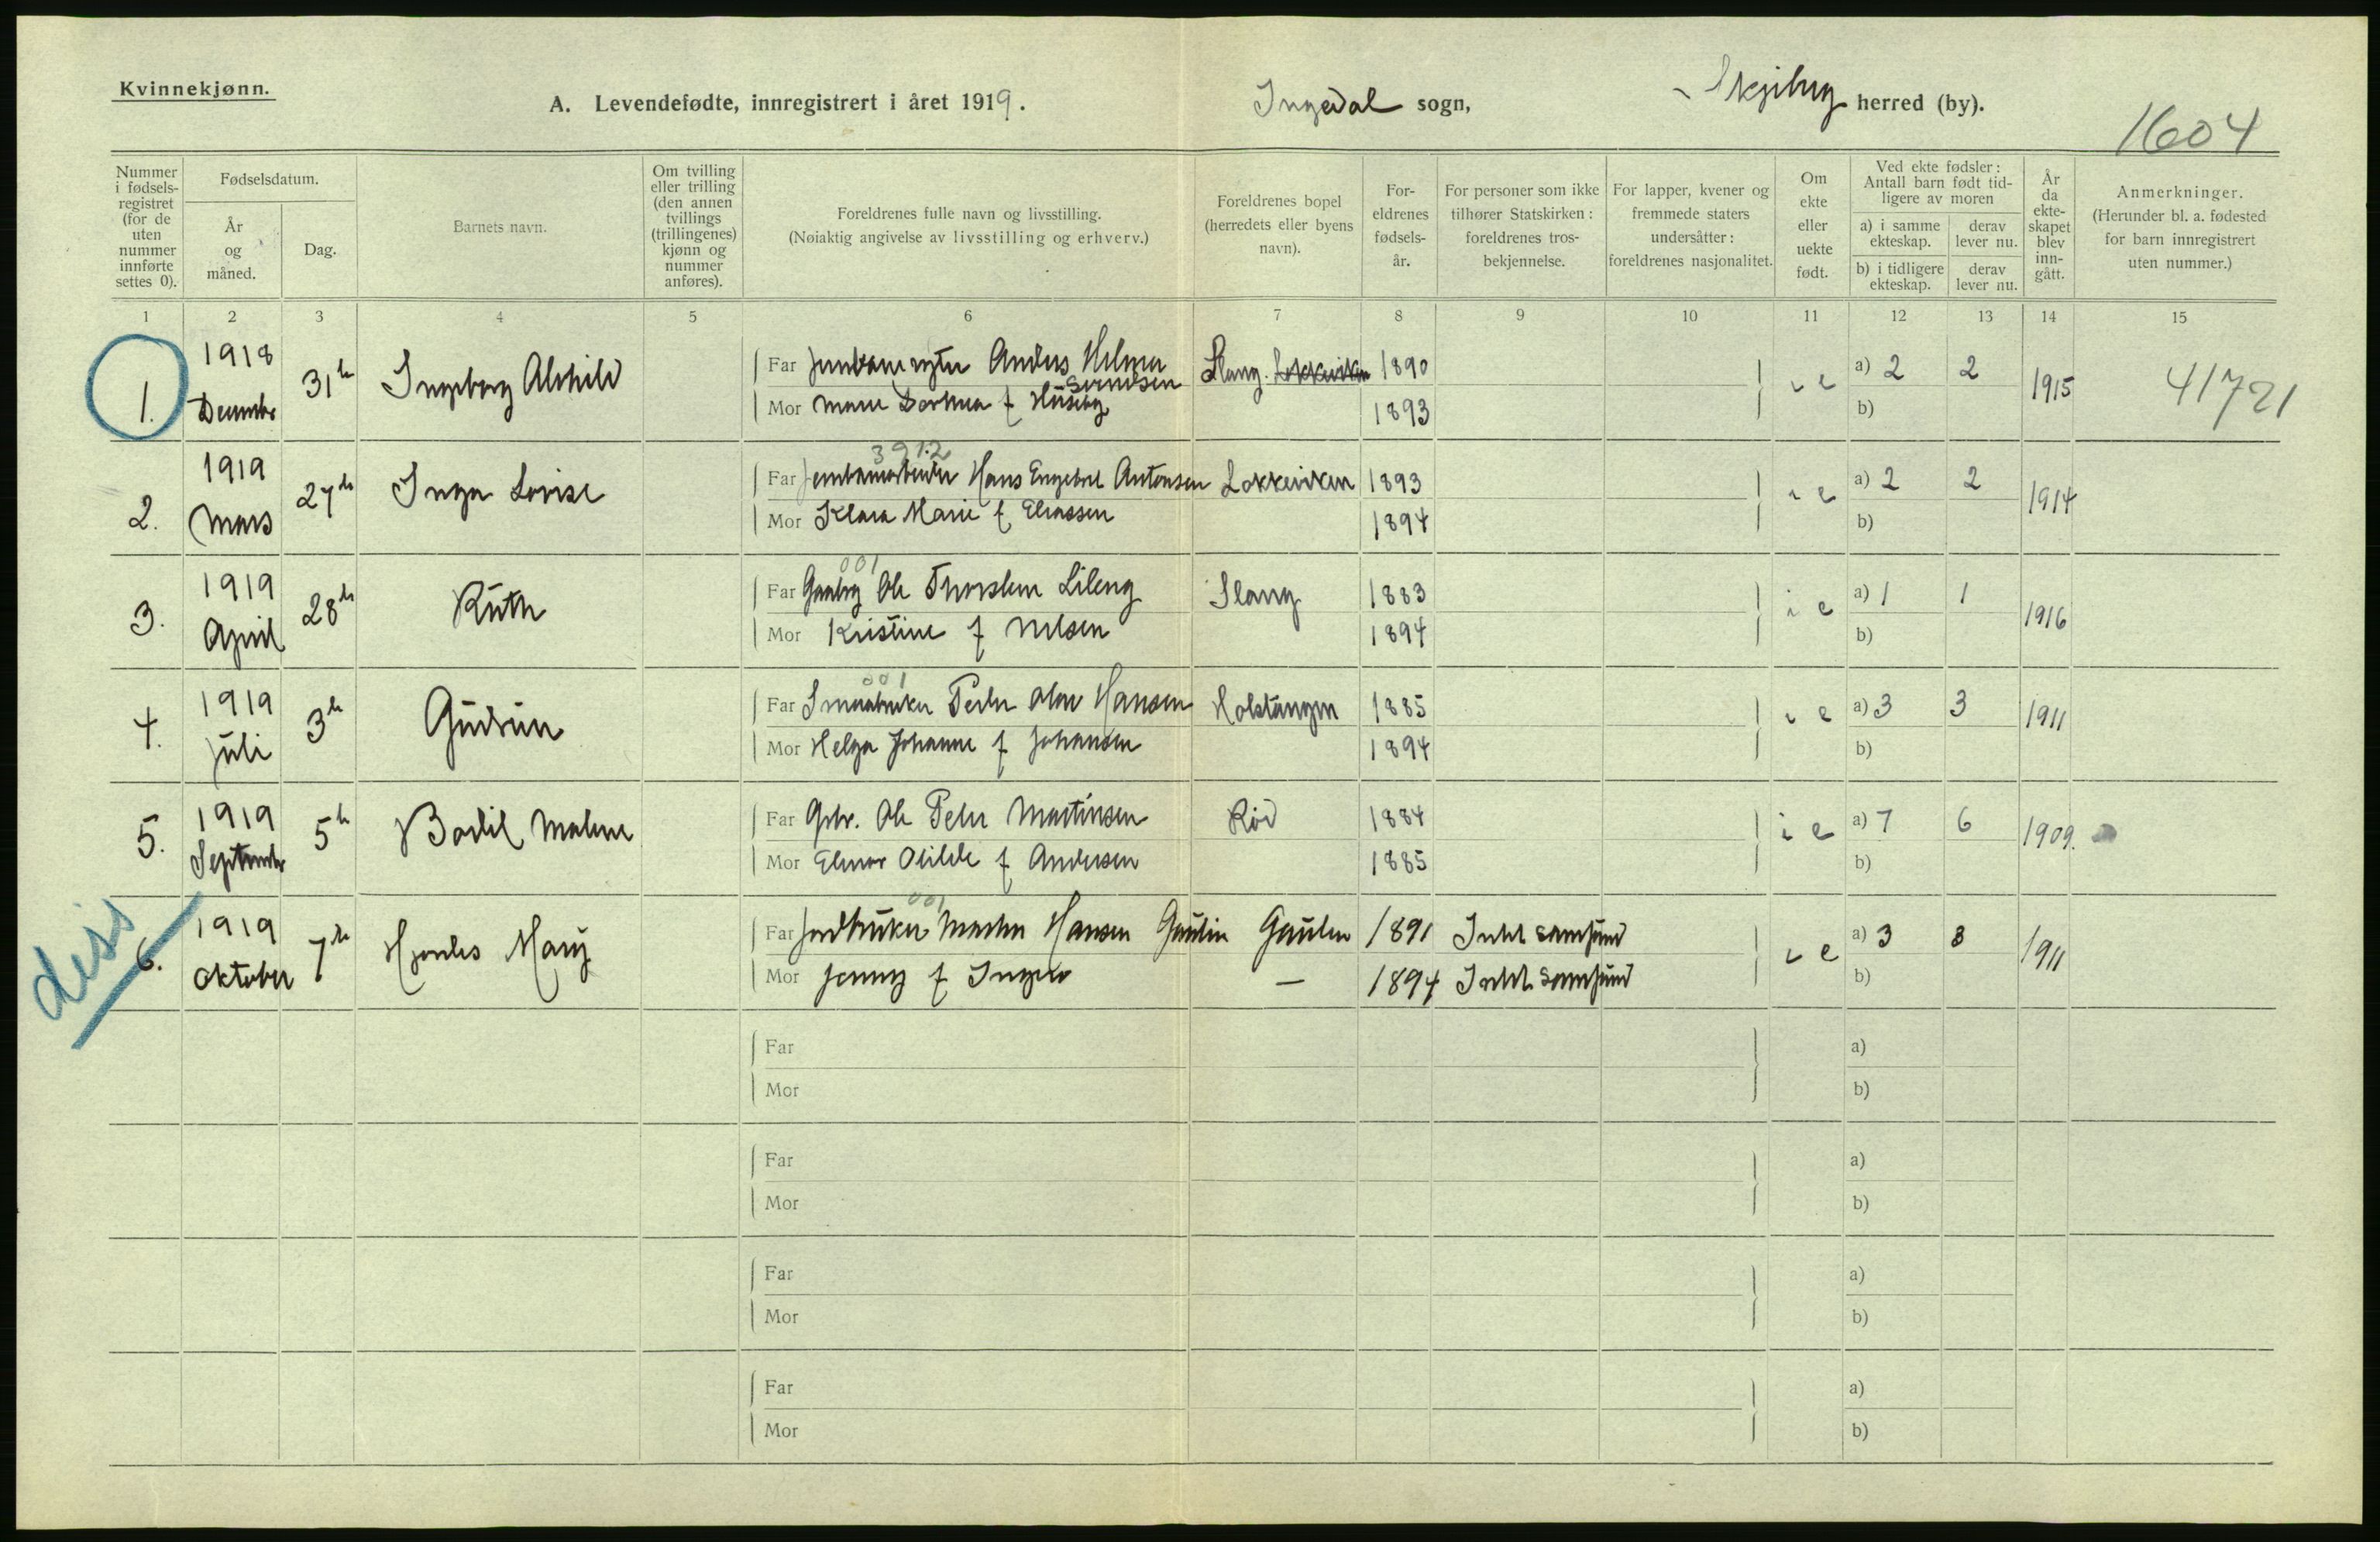 Kvinnekjønn.
A. Levendefødte, innregistrert i året 1919.
Ingedal sogn,
Skjeberg herred (by).
1604
Nummer i fødsels-registret (for de uten nummer innførte settes 0).
Fødselsdatum.
År og måned.
Dag.
Barnets navn.
Om tvilling eller trilling (den annen tvillings (trillingenes) kjønn og nummer anføres).
Foreldrenes fulle navn og livsstilling.
(Nøiaktig angivelse av livsstilling og erhverv.)
Foreldrenes bopel (herredets eller byens navn).
For-eldrenes fødsels-år.
For personer som ikke tilhører Statskirken: foreldrenes tros-bekjennelse.
For lapper, kvener og fremmede staters undersåtter: foreldrenes nasjonalitet.
Om ekte eller uekte født.
Ved ekte fødsler: Antall barn født tid-ligere av moren
a) i samme ekteskap.
derav lever nu.
b) i tidligere ekteskap.
derav lever nu.
År da ekte-skapet blev inn-gått.
Anmerkninger.
(Herunder bl. a. fødested for barn innregistrert uten nummer.)
1 2 3 4 5 6 7 8 9 10 11 12 13 14 15
1. 1918 Decembr 31te Ingeborg Alvhild
Far Anders Hilmer Svendsen Slang. Lokkeviken 1890 i e a) 2 2 1915 41721
Mor Marie Dorthea f Huseby 1893 b)
3912
2. 1919 Mars 27de Inga Lovise
Far Jernbanearbeider Hans Engebret Antonsen Lokkeviken 1893 i e a) 2 2 1914
Mor Klara Marie f Eliassen 1894 b)
001
3. 1919 April 28de Ruth
Far Gaardbr Ole Thorsten Lileng Slang 1883 i e a) 1 1 1916
Mor Kristine f Nilsen 1894 b)
001
4. 1919 Juli 3de Gudrun
Far Smaabruker Peder Olav Hansen Holstangen 1885 i e a) 3 3 1911
Mor Helga Johanne f Johansen 1894 b)
5. 1919 September 5te Bodil Malene
Far Grbr. Ole Peter Martinsen Röd 1884 i e a) 7 6 1909.
Mor Elinor Otilde f Andersen 1885 b)
001
diss
6. 1919 Oktober 7de Hjördis Mary
Far Jordbruker Martin Hansen Gautin Gauten 1891 samfund i e a) 3 3 1911
Mor Jenny f — 1894 samfund b)
Far a)
Mor b)
Far a)
Mor b)
Far a)
Mor b)
Far a)
Mor b)